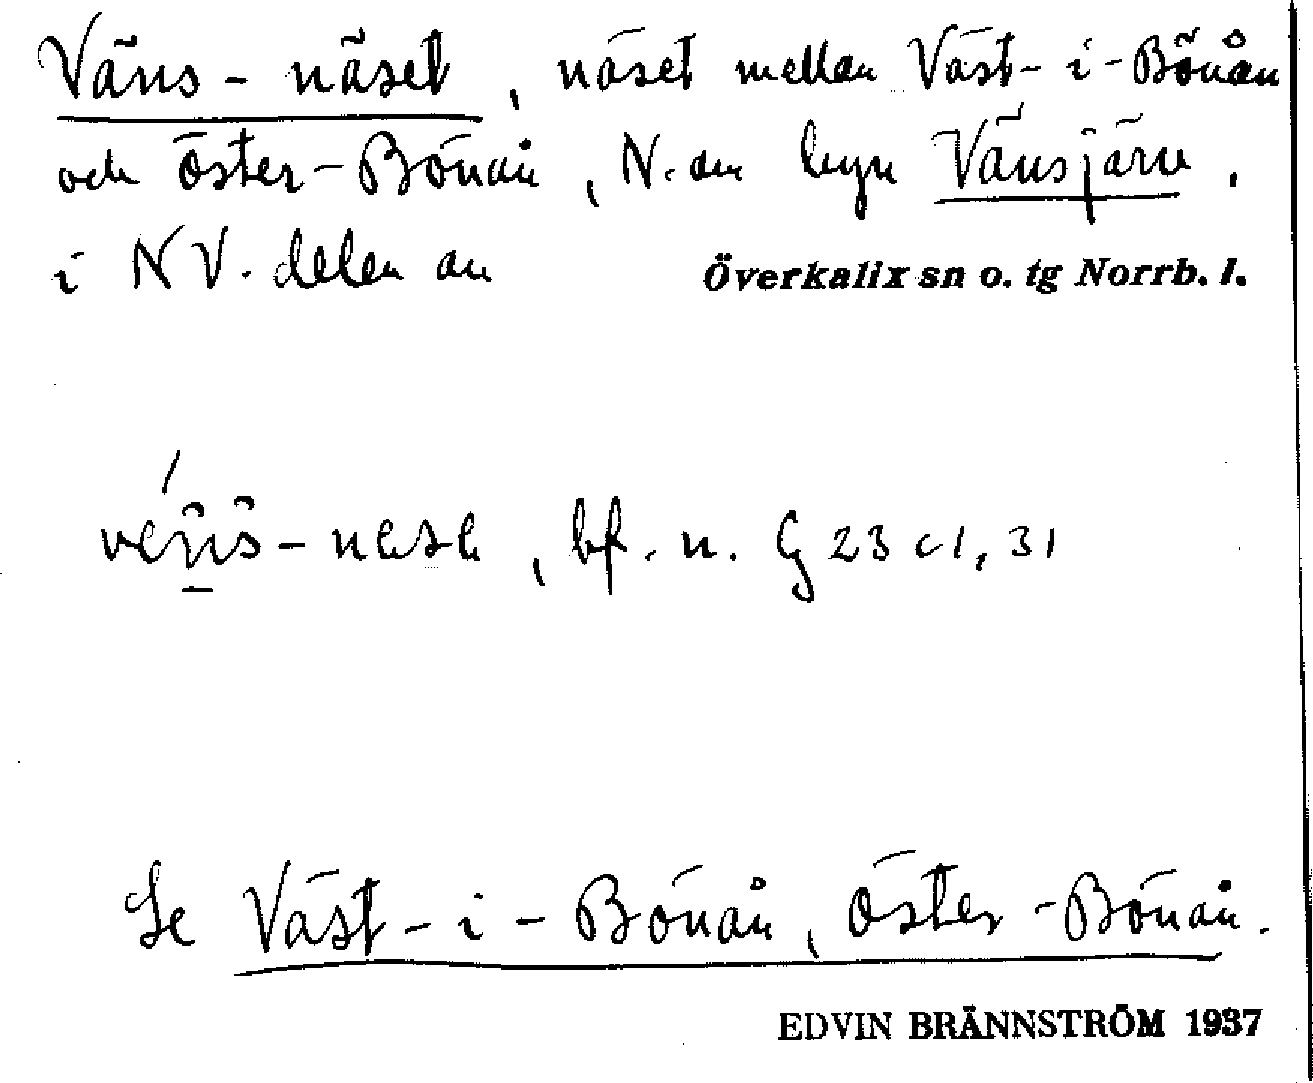 Väns-näset, näset mellan Väst-i-Bönån
och Öster-Bönån, N. om byn Vänsjärv,
i NV. delen av Överkalix sn o. tg Norrb. l.
bf. n. G 23 c1, 31
Se Väst-i-Bönån, Öster-Bönån.
EDVIN BRÄNNSTRÖM 1937